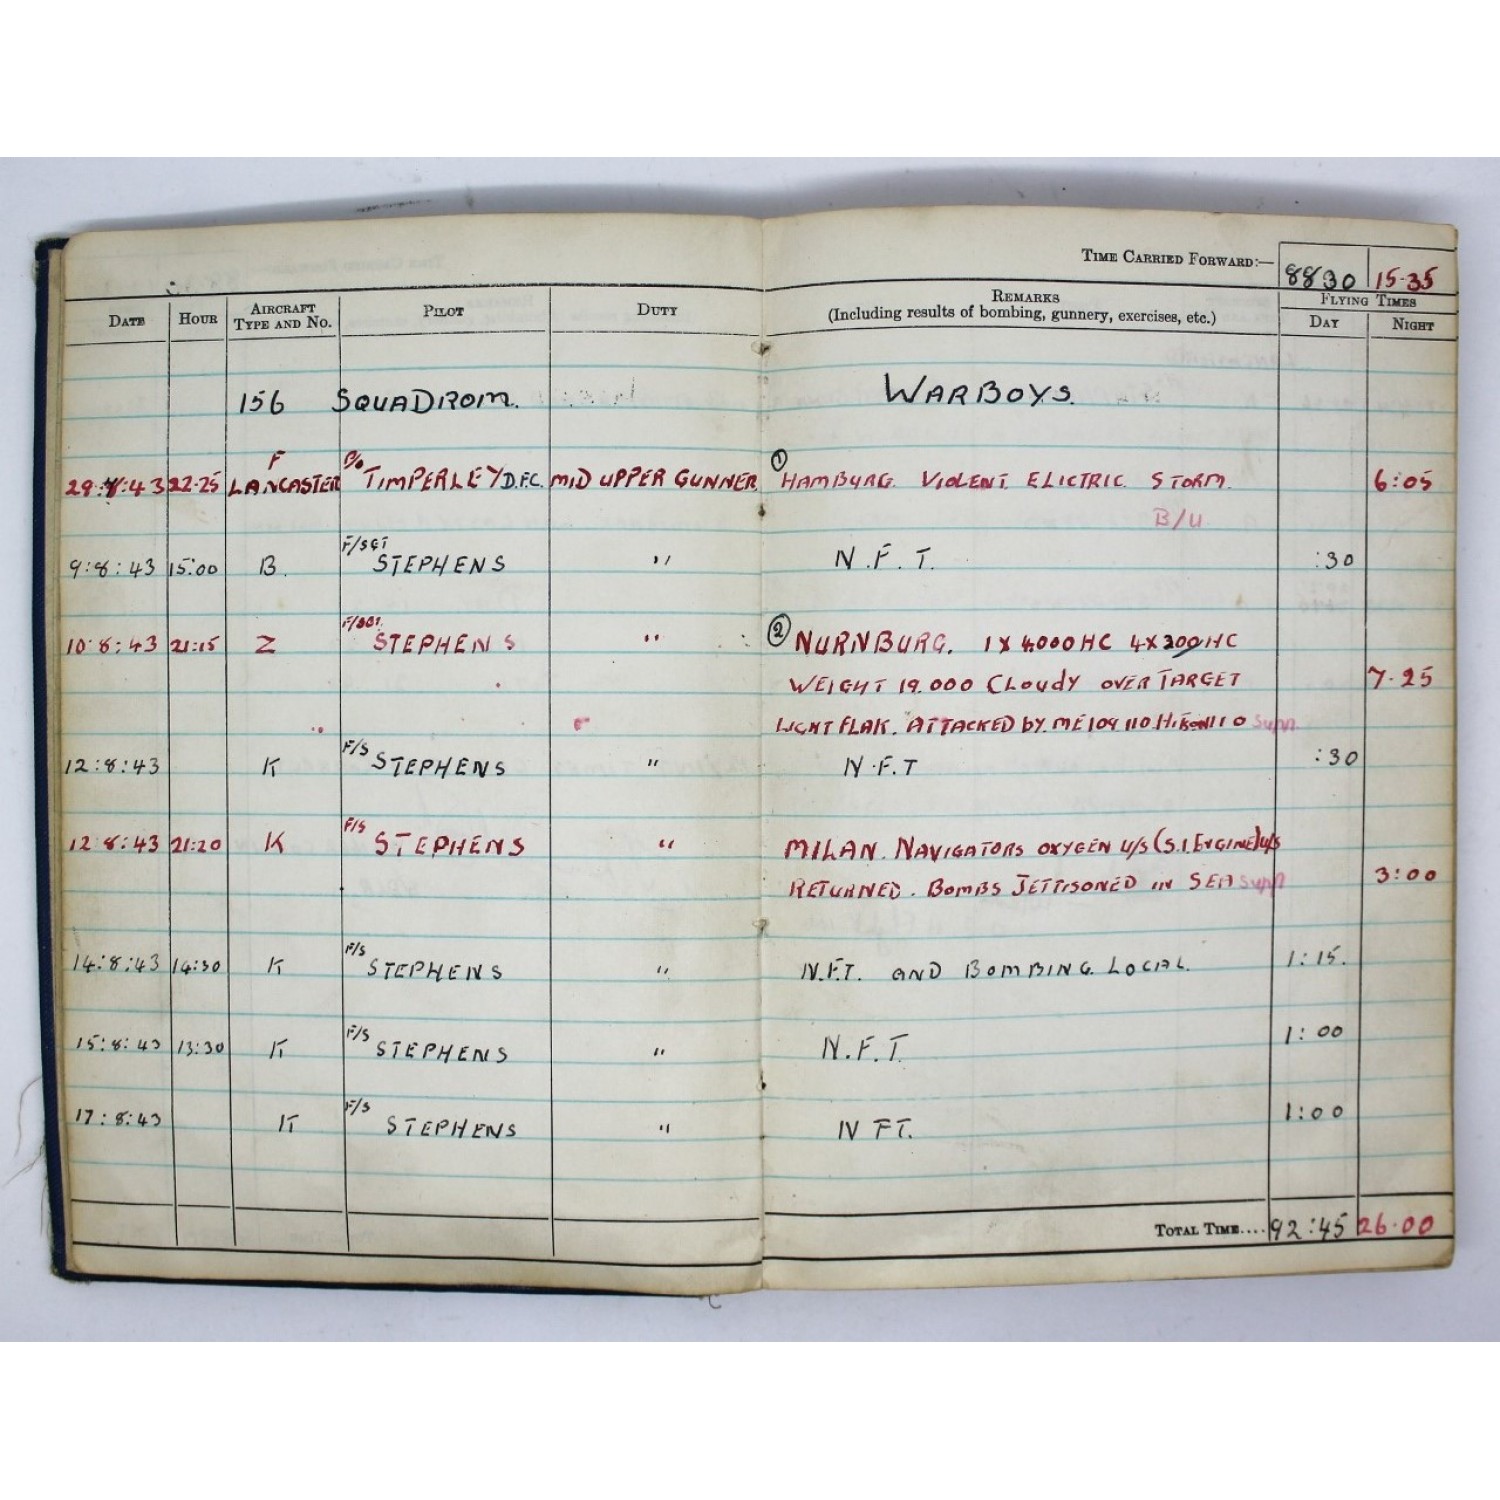 TIME CARRIED FORWARD:— 88 30 15·35
DATE HOUR AIRCRAFT TYPE AND No. PILOT DUTY REMARKS (Including results of bombing, gunnery, exercises, etc.) FLYING TIMES DAY NIGHT
156 SQUADROM. WARBOYS.
F P/O
29:7:43 22·25 LANCASTER TIMPERLEY D.F.C. MID UPPER GUNNER ① HAMBURG. VIOLENT. ELICTRIC. STORM. 6:05
B/U
F/SGT
9:8:43 15:00 B. STEPHENS " N.F.T. :30
F/SGT
10:8:43 21:15 Z STEPHENS " ② NURNBURG. 1X4000HC 4X HC
WEIGHT 19.000 CLOUDY OVER TARGET 7·25
LIGHT FLAK. ATTACKED by. ME109 110. 110
F/S
12:8:43 K STEPHENS " N.F.T :30
F/S
12:8:43 21:20 K STEPHENS " MILAN. NAVIGATORS OXYGEN U/S (S.I. ENGINE) U/S
RETURNED. BOMBS JETTISONED IN SEA 3:00
F/S
14:8:43 14:30 K STEPHENS " N.F.T. AND BOMBING LOCAL. 1:15.
F/S
15:8:43 13:30 K STEPHENS " N.F.T. 1:00
F/S
17:8:43 K STEPHENS " N FT. 1:00
TOTAL TIME.... 92:45 26·00